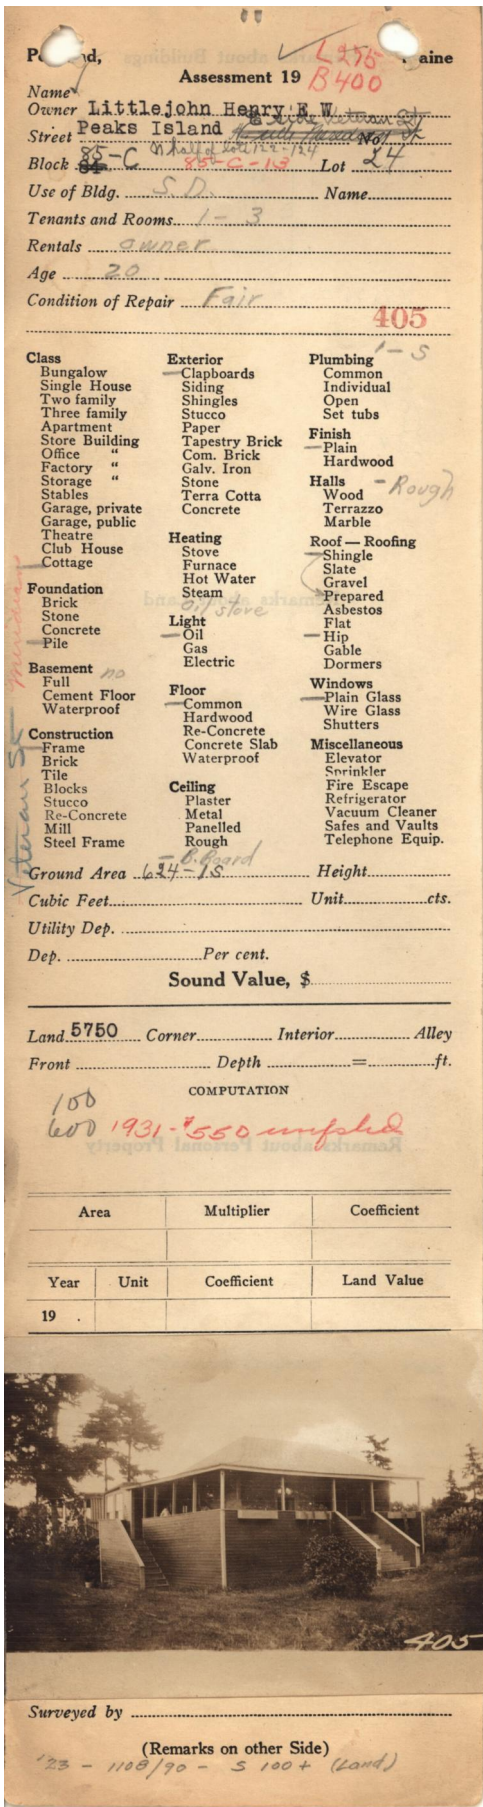 P nd, aine
L 275
Assessment 19 B 400
Name
Owner Littlejohn Henry E W
Side Veteran St
Street Peaks Island No.
N half of lots 122-124
Block 85-C 85-C-13 Lot 24
Use of Bldg. S.D. Name
Tenants and Rooms 1 - 3
Rentals owner
Age 20
Condition of Repair Fair
405
1 - S
Class
Bungalow
Single House
Two family
Three family
Apartment
Store Building
Office "
Factory "
Storage "
Stables
Garage, private
Garage, public
Theatre
Club House
Cottage
Foundation
Brick
Stone
Concrete
Pile
Basement no
Full
Cement Floor
Waterproof
Construction
Frame
Brick
Tile
Blocks
Stucco
Re-Concrete
Mill
Steel Frame
Exterior
Clapboards
Siding
Shingles
Stucco
Paper
Tapestry Brick
Com. Brick
Galv. Iron
Stone
Terra Cotta
Concrete
Heating
Stove
Furnace
Hot Water
Steam
Oil stove
Light
Oil
Gas
Electric
Floor
Common
Hardwood
Re-Concrete
Concrete Slab
Waterproof
Ceiling
Plaster
Metal
Panelled
Rough
- B. Board
Plumbing
Common
Individual
Open
Set tubs
Finish
Plain
Hardwood
Halls - Rough
Wood
Terrazzo
Marble
Roof — Roofing
Shingle
Slate
Gravel
Prepared
Asbestos
Flat
Hip
Gable
Dormers
Windows
Plain Glass
Wire Glass
Shutters
Miscellaneous
Elevator
Sprinkler
Fire Escape
Refrigerator
Vacuum Cleaner
Safes and Vaults
Telephone Equip.
Veteran St Meridian
Ground Area 624-1S Height
Cubic Feet Unit cts.
Utility Dep.
Dep. Per cent.
Sound Value, $
Land 5750 Corner Interior Alley
Front Depth = ft.
COMPUTATION
100
600 1931-$550 unfshd
Area Multiplier Coefficient
Year Unit Coefficient Land Value
19 .
405
Surveyed by
(Remarks on other Side)
'23 - 1108/90 - S 100+ (Land)